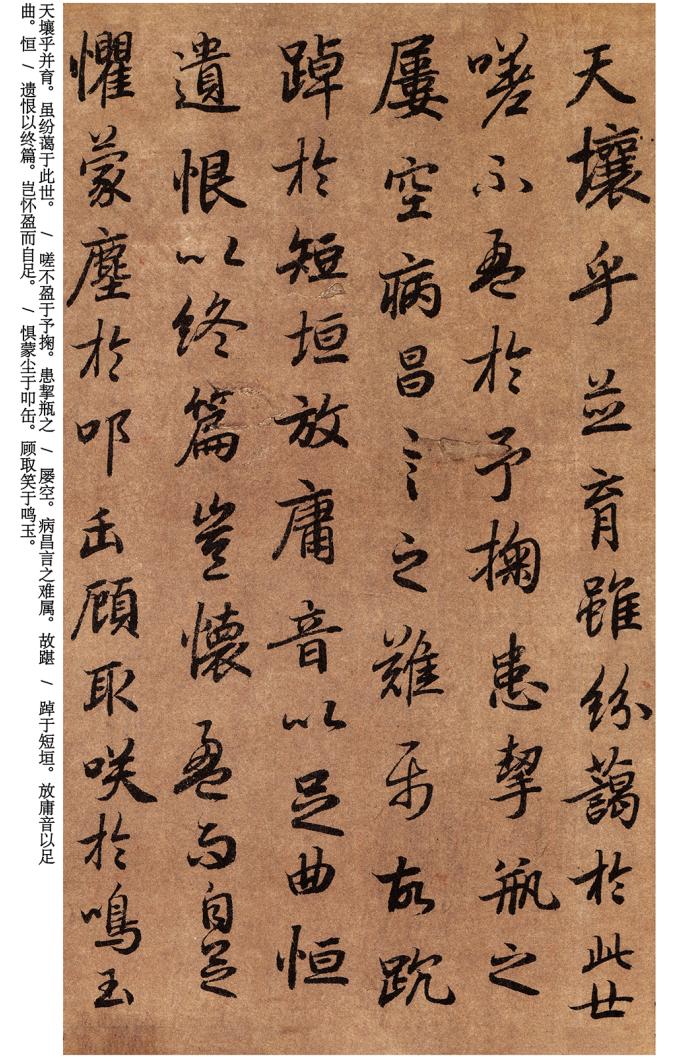 天壤乎並育雖紛藹於此世
嗟不盈於予掬患挈瓶之
屢空病昌言之難屬故踸
踔於短垣放庸音以足曲恒
遺恨以終篇豈懷盈而自足
懼蒙塵於叩缶顧取笑於鳴玉
天壤乎并育。虽纷蔼于此世。 / 嗟不盈于予掬。患挈瓶之 / 屡空。病昌言之难属。故踸 / 踔于短垣。放庸音以足
曲。恒 / 遗恨以终篇。岂怀盈而自足。 / 惧蒙尘于叩缶。顾取笑于鸣玉。